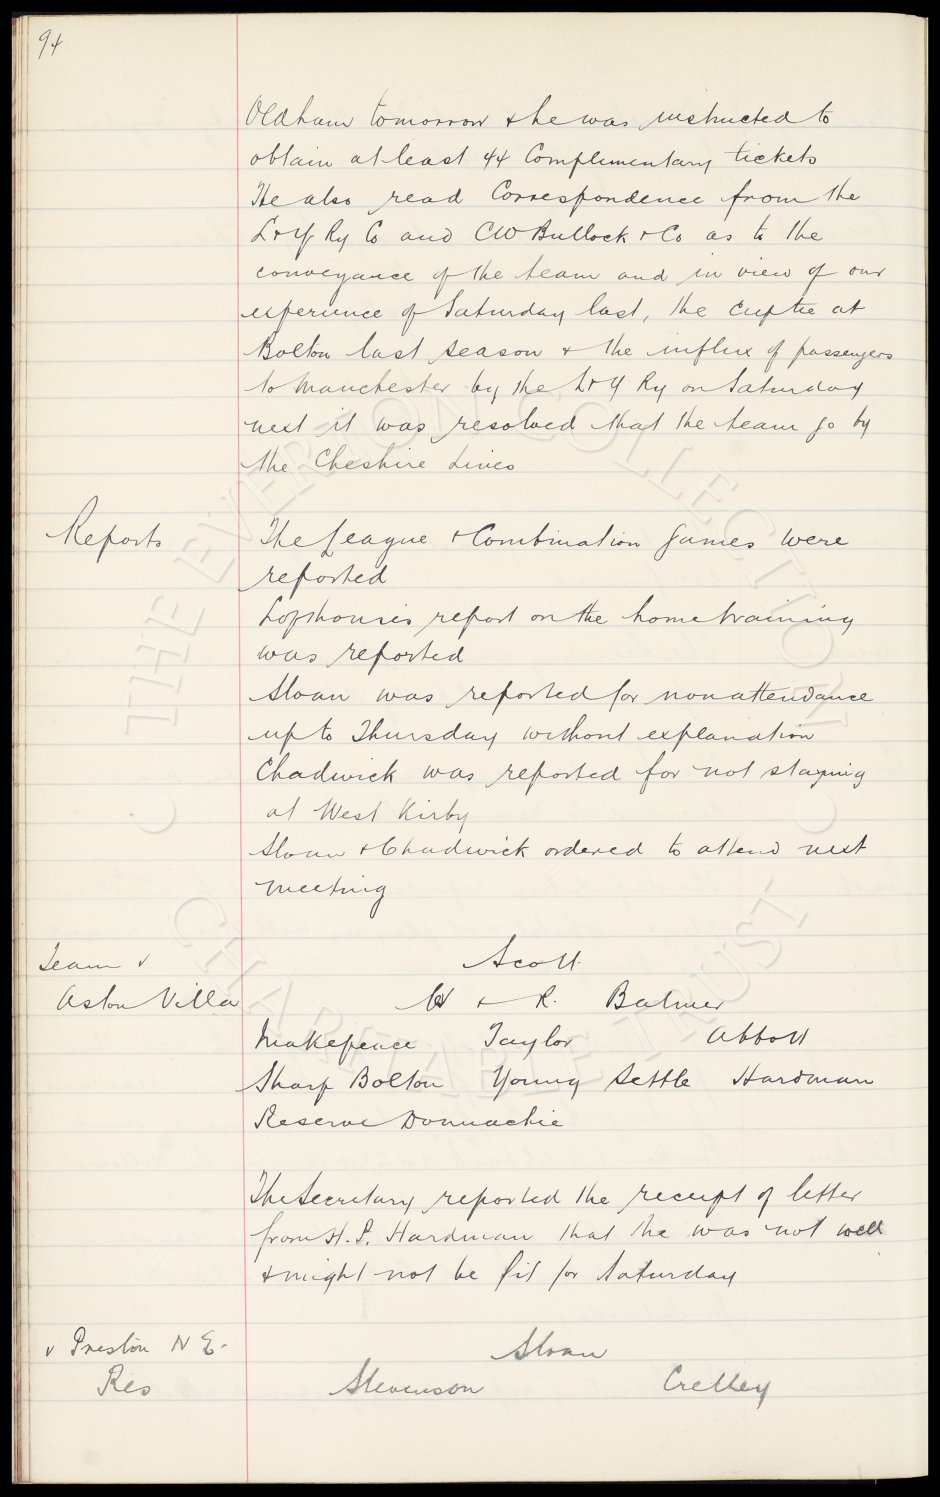 94
Oldham tomorrow & he was instructed to
obtain at least 44 Complimentary tickets
He also read Correspondence from the
L & Y Ry Co and CW Bullock & Co as to the
conveyance of the team and in view of our
experience of Saturday last, the Cuptie at
Bolton last season & the influx of passengers
to Manchester by the L & Y Ry on Saturday
next it was resolved that the team go by
the Cheshire Lines
Reports
The League & Combination Games were
reported
Lofthouse's report on the home training
was reported
Sloan was reported for nonattendance
up to Thursday without explanation
Chadwick was reported for not staying
at West Kirby
Sloan & Chadwick ordered to attend next
meeting
Team v
Aston Villa
Scott
W & R. Balmer
Makepeace Taylor Abbott
Sharp Bolton Young Settle Hardman
Reserve Donnachie
The Secretary reported the receipt of letter
from H. P. Hardman that he was not well
& might not be fit for Saturday
v Preston N E.
Res
Sloan
Stevenson Crelley
THE EVERTON COLLECTION
CHARITABLE TRUST